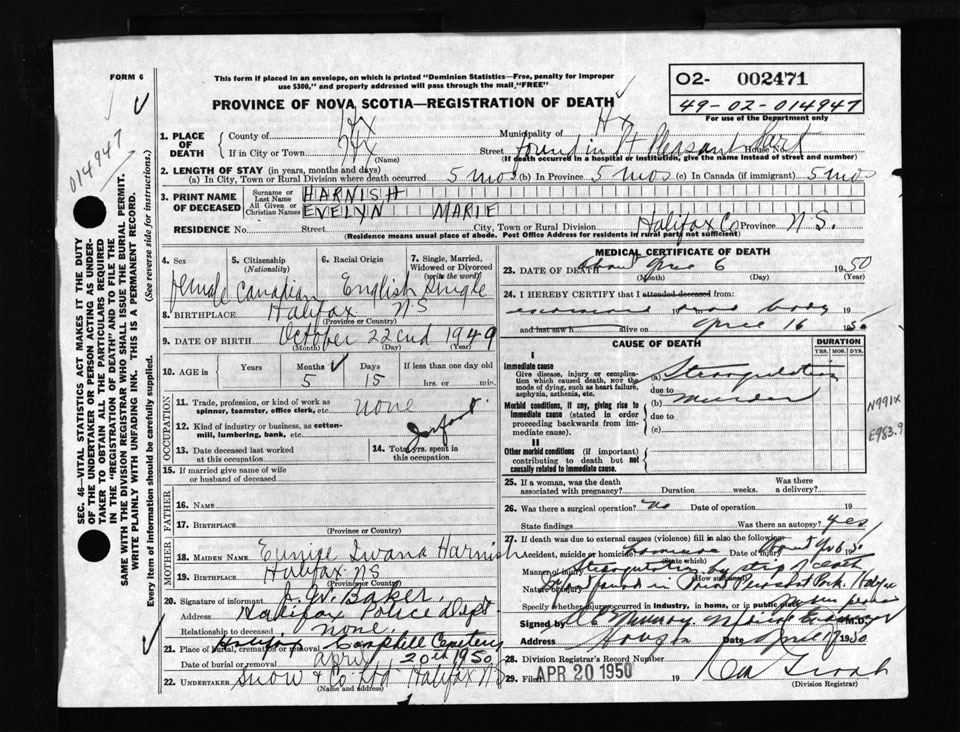 FORM 6
This form if placed in an envelope, on which is printed "Dominion Statistics—Free, penalty for improper
use $300," and properly addressed will pass through the mail "FREE"
PROVINCE OF NOVA SCOTIA—REGISTRATION OF DEATH
O2- 002471
49-02-014947
For use of the Department only
014947
SEC. 46—VITAL STATISTICS ACT MAKES IT THE DUTY
OF THE UNDERTAKER OR PERSON ACTING AS UNDER-
TAKER TO OBTAIN ALL THE PARTICULARS REQUIRED
IN THE "REGISTRATION OF DEATH" AND TO FILE THE
SAME WITH THE DIVISION REGISTRAR WHO SHALL ISSUE THE BURIAL PERMIT.
WRITE PLAINLY WITH UNFADING INK. THIS IS A PERMANENT RECORD.
Every item of information should be carefully supplied. (See reverse side for instructions.)
1. PLACE OF DEATH
County of Hx Municipality of Hx
If in City or Town Hfx Street found in Pt Pleasant Park House No.
(Name) (If death occurred in a hospital or institution, give the name instead of street and number)
2. LENGTH OF STAY (in years, months and days)
(a) In City, Town or Rural Division where death occurred 5 mos (b) In Province 5 mos (c) In Canada (if immigrant) 5 mos
3. PRINT NAME OF DECEASED
Surname or Last Name HARNISH
All Given or Christian Names EVELYN MARIE
RESIDENCE No. Street City, Town or Rural Division Halifax Co Province N.S.
(Residence means usual place of abode. Post Office Address for residents in rural parts not sufficient)
4. Sex 5. Citizenship (Nationality) 6. Racial Origin 7. Single, Married, Widowed or Divorced (write the word)
Female Canadian English Single
8. BIRTHPLACE Halifax NS
(Province or Country)
9. DATE OF BIRTH October 22nd 1949
(Month) (Day) (Year)
10. AGE in Years Months Days If less than one day old
5 15 hrs. or min.
OCCUPATION
11. Trade, profession, or kind of work as
spinner, teamster, office clerk, etc. none
12. Kind of industry or business, as cotton-
mill, lumbering, bank, etc.
Infant
13. Date deceased last worked at this occupation
14. Total yrs. spent in this occupation
15. If married give name of wife
or husband of deceased
FATHER
16. Name
17. Birthplace
(Province or Country)
MOTHER
18. Maiden Name Eunice Harnish
19. Birthplace Halifax NS
(Province or Country)
20. Signature of informant W. Baker
Address Halifax Police Dept
Relationship to deceased none
21. Place of burial, cremation or removal Campbell Cemetery
Date of burial or removal April 20th 1950
22. Undertaker Snow & Co Ltd Halifax NS
(Name and address)
MEDICAL CERTIFICATE OF DEATH
23. DATE OF DEATH About April 6 1950
(Month) (Day) (Year)
24. I HEREBY CERTIFY that I attended deceased from:
examined dead body 19
and last saw h alive on April 16 1950
CAUSE OF DEATH
DURATION
YRS. MOS. DYS.
I
Immediate cause
Give disease, injury or complica-
tion which caused death, not the
mode of dying, such as heart failure,
asphyxia, asthenia, etc.
(a) Strangulation
due to
Morbid conditions, if any, giving rise to
immediate cause (stated in order
proceeding backwards from im-
mediate cause).
(b) murder
due to
(c)
N991X
E983.9
II
Other morbid conditions (if important)
contributing to death but not
causally related to immediate cause.
25. If a woman, was the death
associated with pregnancy? Duration weeks. Was there a delivery?
26. Was there a surgical operation? no Date of operation 19
State findings Was there an autopsy? yes
27. If death was due to external causes (violence) fill in also the following:
Accident, suicide or homicide Homicide Date of injury About Apr 6 1950
(State which)
Manner of injury Strangulation by strip of cloth
(How sustained)
Nature of injury found in Point Pleasant Park Halifax
Specify whether injury occurred in industry, in home, or in public place
Signed by Murray Medical Examiner M.D.
Address Date April 17 1950
28. Division Registrar's Record Number
29. Filed APR 20 1950 19
(Division Registrar)